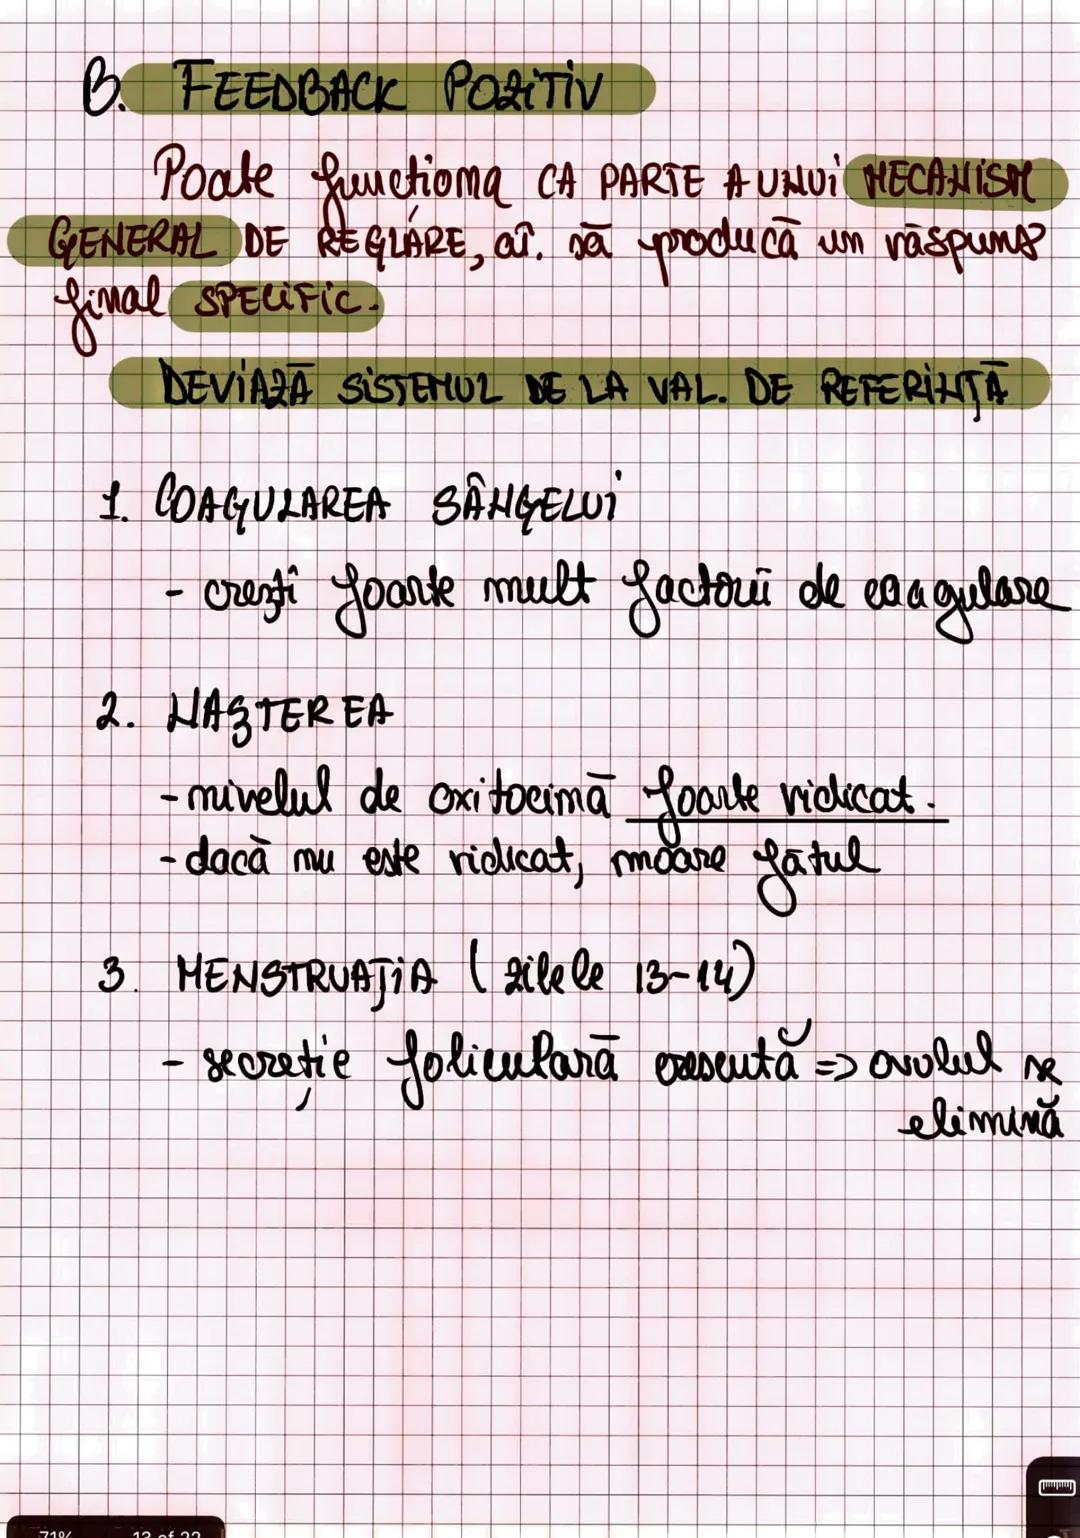 B. FEEDBACK POZiTiV
Poate funcționa CA PARTE A UNUi MECANiSM
GENERAL DE REGLARE, aî. să producă un răspuns
final SPECiFiC.
DEViAZĂ SiSTEMUL DE LA VAL. DE REFERiNȚĂ
1. COAGULAREA SÂNGELUi
- crești foarte mult factorii de coagulare
2. NAȘTEREA
- nivelul de oxitocină foarte ridicat.
- dacă nu este ridicat, moare fătul
3. MENSTRUAȚiA (zilele 13-14)
- secreție foliculară crescută => ovulul se
elimină
71% 13 of 22